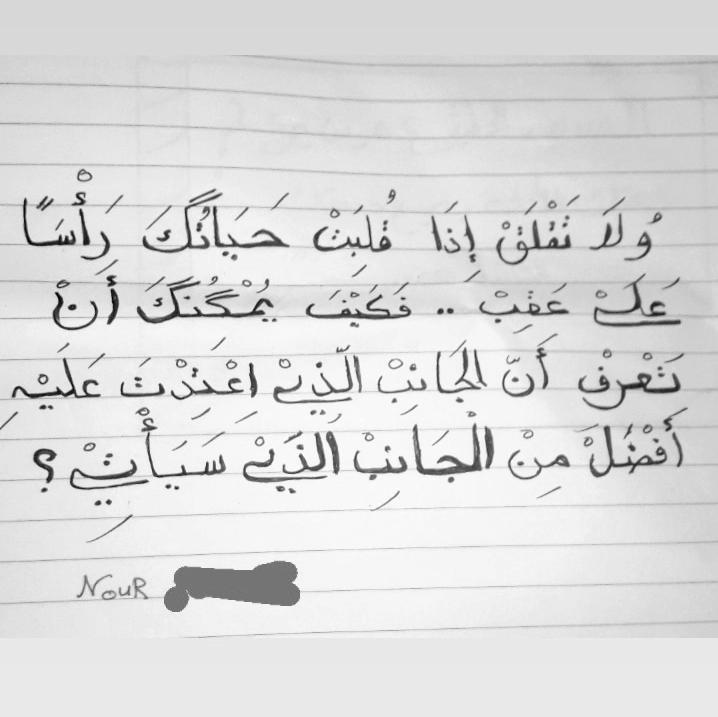 وُلَا تَقْلَقْ إِذَا قُلِبَتْ حَيَاتُكَ رَأْسَاً
عَلَىْ عَقِبْ .. فَكَيْفَ يُمْكُنُكَ أَنْ
تَعْرِفْ أَنّ الجَانِبْ الّذِيْ اعْتَدْتَ عَلَيْهِ
أَفْضَلَ مِنْ الْجَانِبْ الَذِيْ سَيَأْتِيْ ؟
NOUR